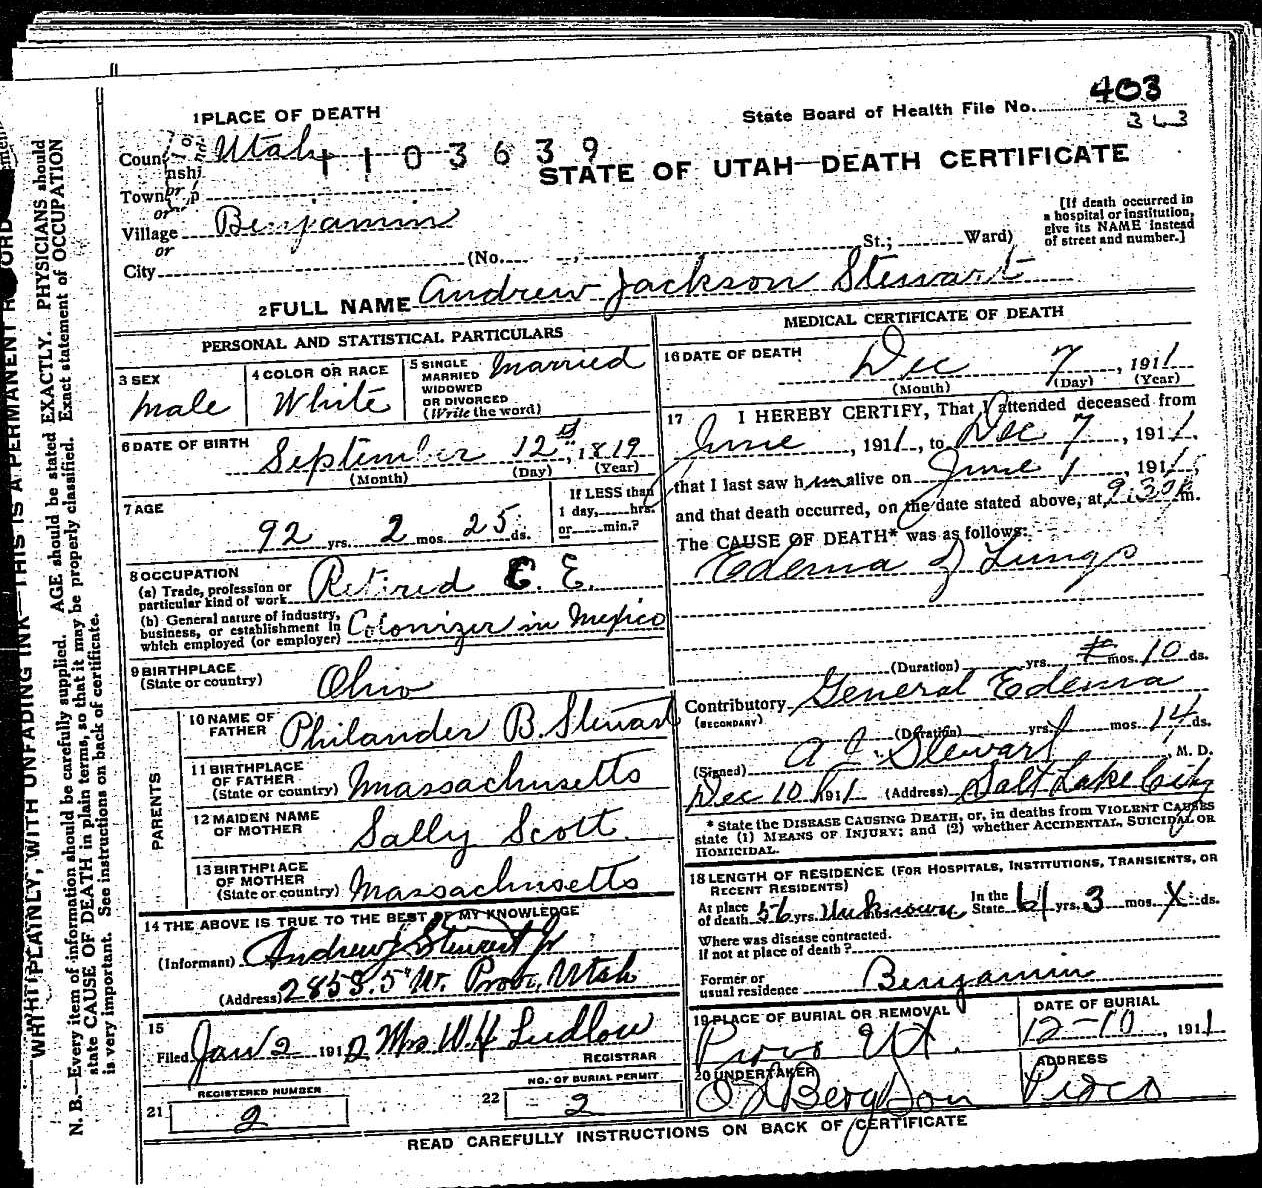 403
State Board of Health File No.
363
1 PLACE OF DEATH
County Utah 1103639
STATE OF UTAH—DEATH CERTIFICATE
Township
or
Village Benjamin
or
City (No. St.; Ward)
[If death occurred in a hospital or institution, give its NAME instead of street and number.]
2 FULL NAME Andrew Jackson Stewart
PERSONAL AND STATISTICAL PARTICULARS
3 SEX
Male
4 COLOR OR RACE
White
5 SINGLE MARRIED WIDOWED OR DIVORCED (Write the word)
Married
6 DATE OF BIRTH
September 12th, 1819
(Month) (Day) (Year)
7 AGE
92 yrs. 2 mos. 25 ds.
If LESS than 1 day, hrs. or min.?
8 OCCUPATION
(a) Trade, profession or particular kind of work Retired C. E.
(b) General nature of industry, business, or establishment in which employed (or employer) Colonizer in Mexico
9 BIRTHPLACE
(State or country) Ohio
PARENTS
10 NAME OF FATHER Philander B. Stewart
11 BIRTHPLACE OF FATHER (State or country) Massachusetts
12 MAIDEN NAME OF MOTHER Sally Scott.
13 BIRTHPLACE OF MOTHER (State or country) Massachusetts
14 THE ABOVE IS TRUE TO THE BEST OF MY KNOWLEDGE
(Informant) Andrew J Stewart Jr
(Address) 285 S. 5" W. Provo, Utah
15
Filed Jan 2 1912 Mrs W. H Ludlow
REGISTRAR
21 REGISTERED NUMBER
2
22 NO. OF BURIAL PERMIT
2
MEDICAL CERTIFICATE OF DEATH
16 DATE OF DEATH
Dec 7, 1911
(Month) (Day) (Year)
17 I HEREBY CERTIFY, That I attended deceased from
June, 1911, to Dec 7, 1911,
that I last saw him alive on June 1, 1911,
and that death occurred, on the date stated above, at 9:30 P m.
The CAUSE OF DEATH* was as follows:
Edema of Lungs
(Duration) yrs. mos. 10 ds.
Contributory General Edema
(SECONDARY)
(Duration) yrs. mos. 14 ds.
(Signed) A J. Stewart, M. D.
Dec 10 1911 (Address) Salt Lake City
* State the DISEASE CAUSING DEATH, or, in deaths from VIOLENT CAUSES
state (1) MEANS OF INJURY; and (2) whether ACCIDENTAL, SUICIDAL OR
HOMICIDAL.
18 LENGTH OF RESIDENCE (FOR HOSPITALS, INSTITUTIONS, TRANSIENTS, OR
RECENT RESIDENTS)
At place of death 56 yrs. Unknown In the State 61 yrs. 3 mos. X ds.
Where was disease contracted.
If not at place of death?
Former or usual residence Benjamin
19 PLACE OF BURIAL OR REMOVAL
Provo Ut.
DATE OF BURIAL
12-10, 1911
20 UNDERTAKER
ADDRESS
Provo
READ CAREFULLY INSTRUCTIONS ON BACK OF CERTIFICATE
WRITE PLAINLY, WITH UNFADING INK—THIS IS A PERMANENT RECORD
N. B.—Every item of information should be carefully supplied. AGE should be stated EXACTLY. PHYSICIANS should
state CAUSE OF DEATH in plain terms, so that it may be properly classified. Exact statement of OCCUPATION
is very important. See instructions on back of certificate.